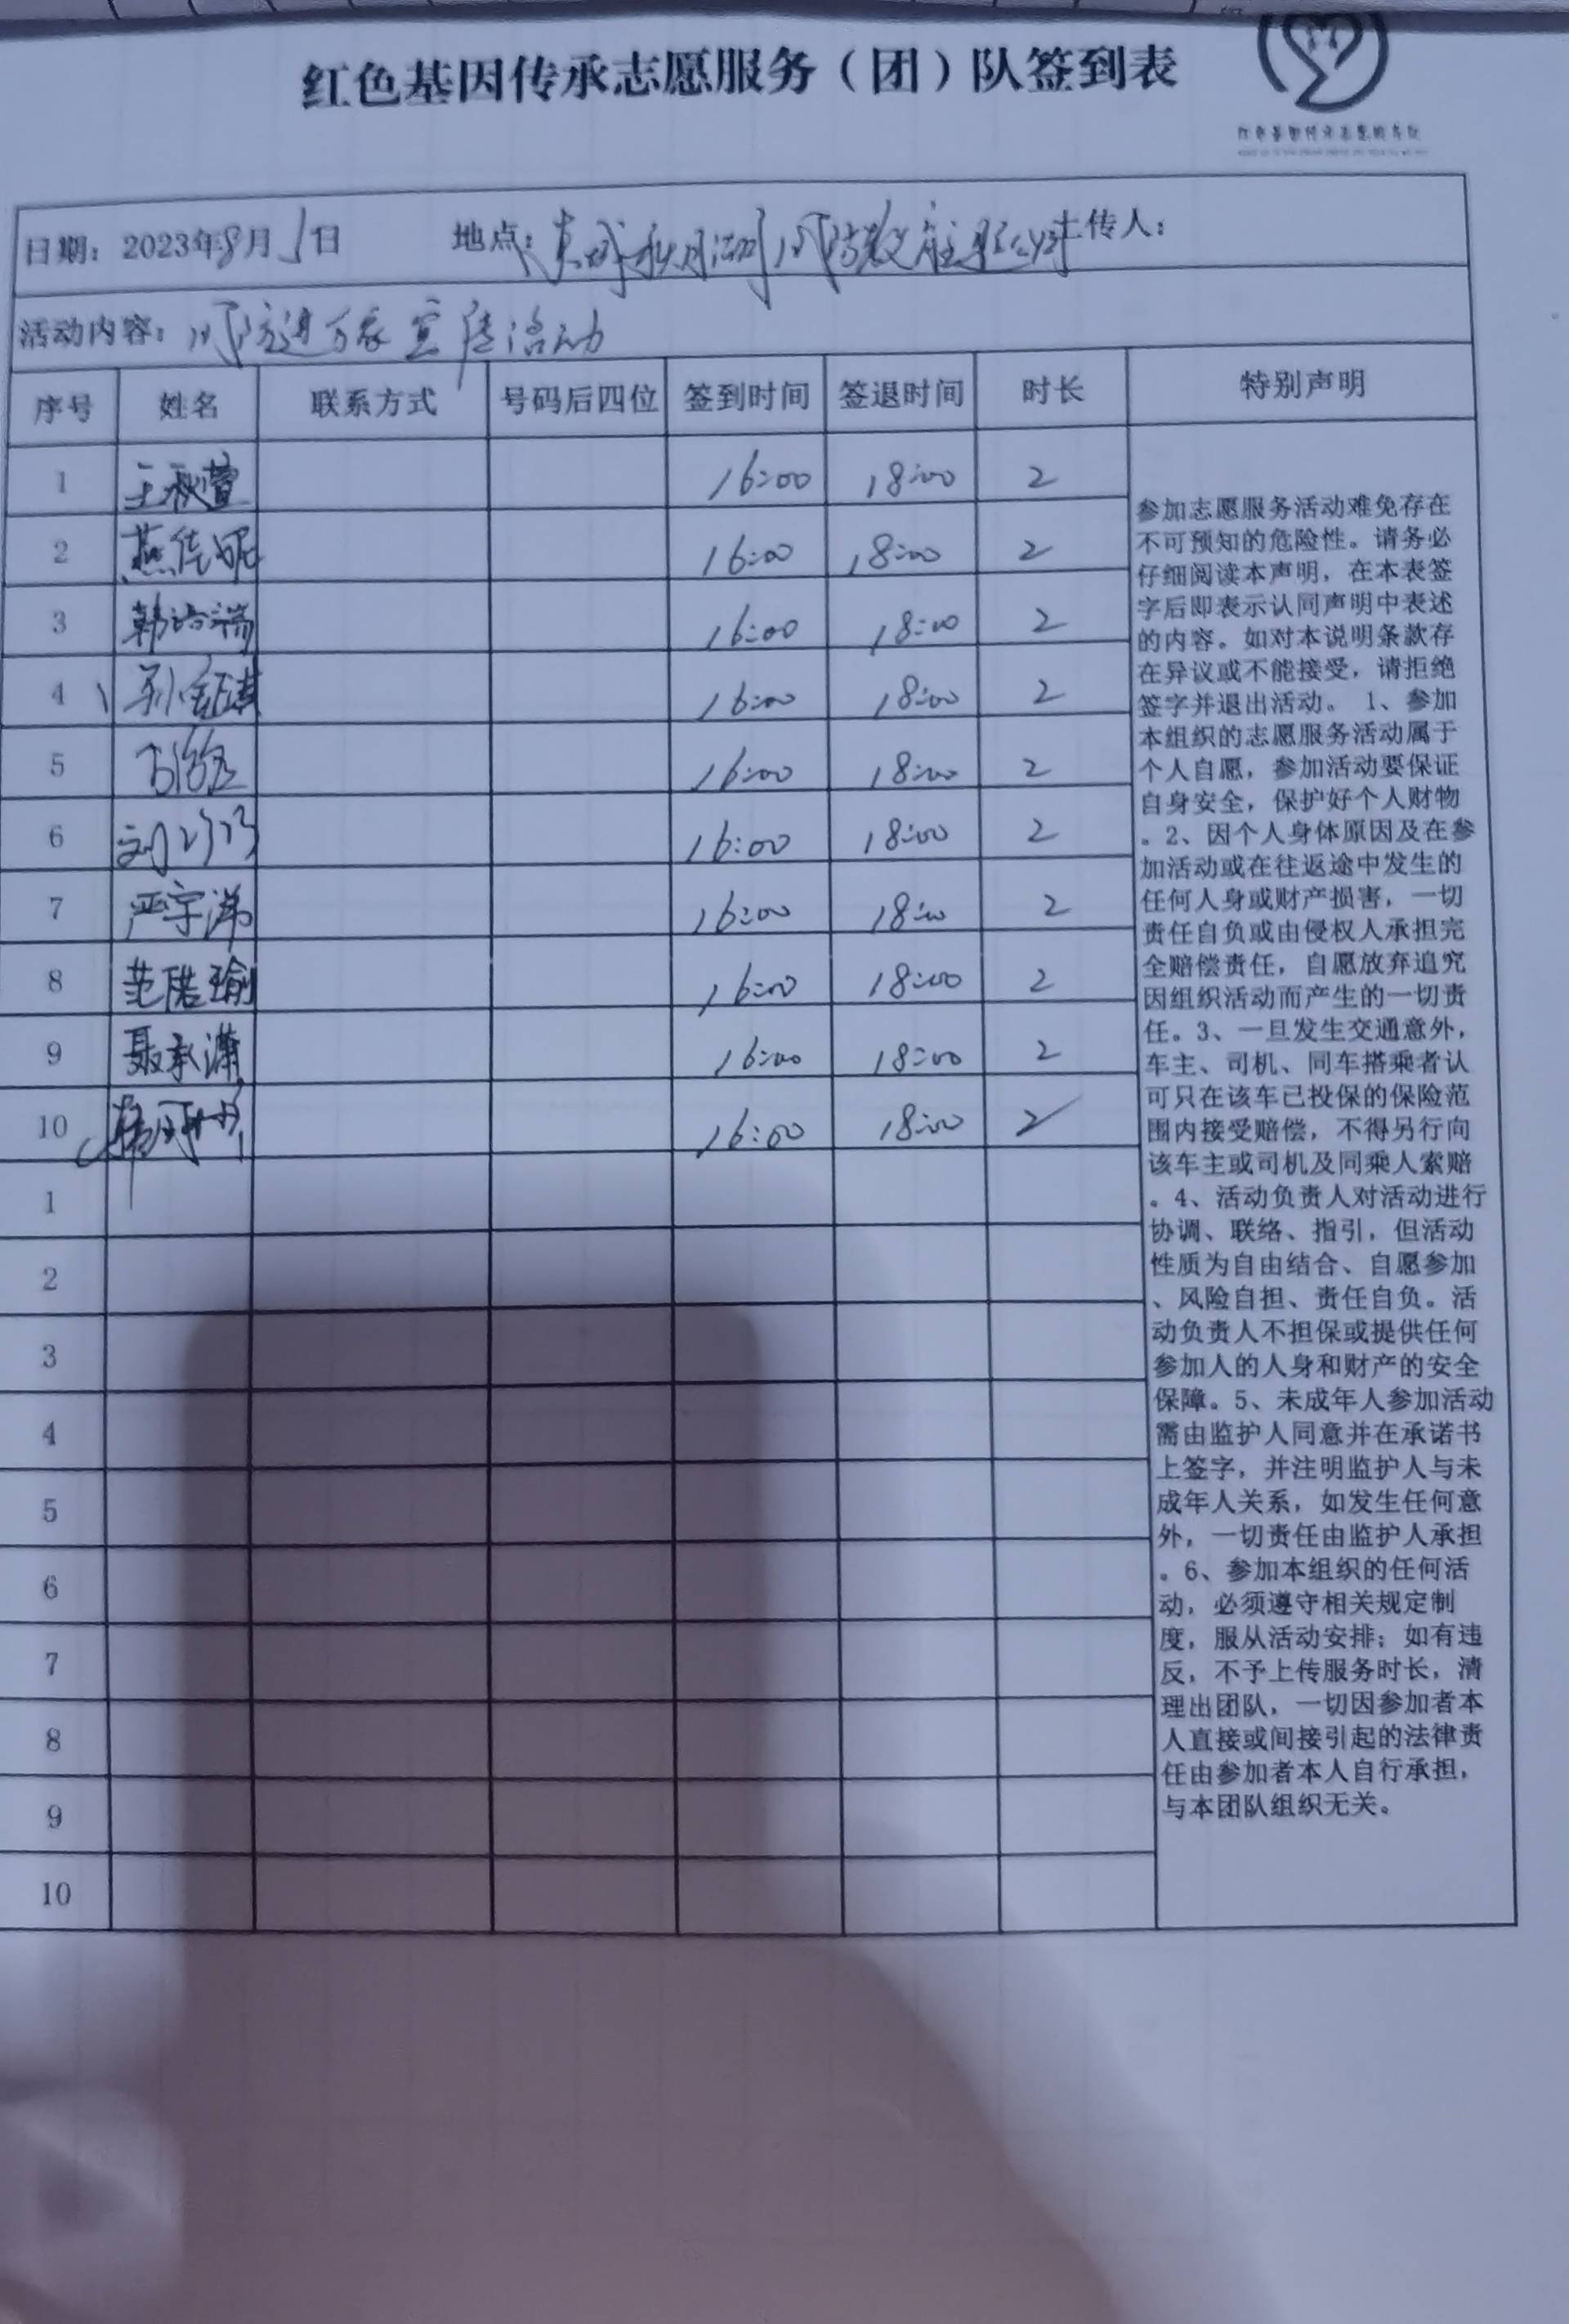 红色基因传承志愿服务（团）队签到表
红色基因传承志愿服务队
日期：2023年8月5日 地点： 上传人：
活动内容：国防进万家宣传活动
序号 姓名 联系方式 号码后四位 签到时间 签退时间 时长 特别声明
1 王秋萱 16:00 18:00 2
2 燕佳妮 16:00 18:00 2
3 16:00 18:00 2
4 16:00 18:00 2
5 16:00 18:00 2
6 16:00 18:00 2
7 严宇涕 16:00 18:00 2
8 范偌瑜 16:00 18:00 2
9 聂承潇 16:00 18:00 2
10 16:00 18:00 2
1
2
3
4
5
6
7
8
9
10
参加志愿服务活动难免存在
不可预知的危险性。请务必
仔细阅读本声明，在本表签
字后即表示认同声明中表述
的内容。如对本说明条款存
在异议或不能接受，请拒绝
签字并退出活动。 1、参加
本组织的志愿服务活动属于
个人自愿，参加活动要保证
自身安全，保护好个人财物
。2、因个人身体原因及在参
加活动或在往返途中发生的
任何人身或财产损害，一切
责任自负或由侵权人承担完
全赔偿责任，自愿放弃追究
因组织活动而产生的一切责
任。3、一旦发生交通意外，
车主、司机、同车搭乘者认
可只在该车已投保的保险范
围内接受赔偿，不得另行向
该车主或司机及同乘人索赔
。4、活动负责人对活动进行
协调、联络、指引，但活动
性质为自由结合、自愿参加
、风险自担、责任自负。活
动负责人不担保或提供任何
参加人的人身和财产的安全
保障。5、未成年人参加活动
需由监护人同意并在承诺书
上签字，并注明监护人与未
成年人关系，如发生任何意
外，一切责任由监护人承担
。6、参加本组织的任何活
动，必须遵守相关规定制
度，服从活动安排；如有违
反，不予上传服务时长，清
理出团队，一切因参加者本
人直接或间接引起的法律责
任由参加者本人自行承担，
与本团队组织无关。